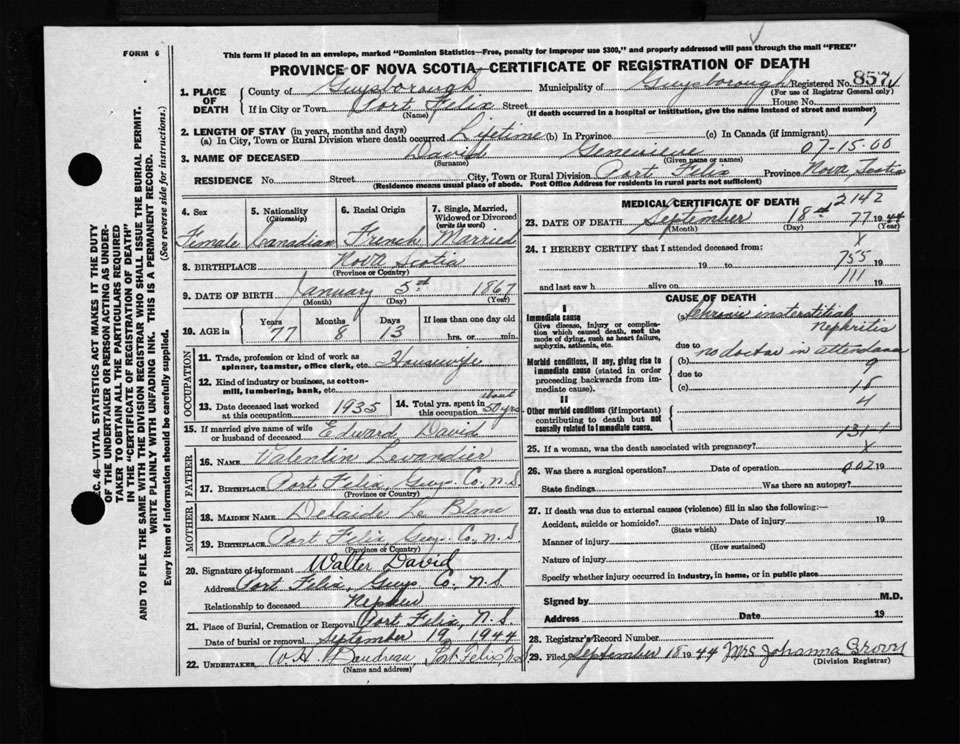 FORM 6
This form if placed in an envelope, marked "Dominion Statistics—Free, penalty for improper use $300," and properly addressed will pass through the mail "FREE"
PROVINCE OF NOVA SCOTIA—CERTIFICATE OF REGISTRATION OF DEATH
SEC. 46—VITAL STATISTICS ACT MAKES IT THE DUTY
OF THE UNDERTAKER OR PERSON ACTING AS UNDER-
TAKER TO OBTAIN ALL THE PARTICULARS REQUIRED
IN THE "CERTIFICATE OF REGISTRATION OF DEATH"
AND TO FILE THE SAME WITH THE DIVISION REGISTRAR WHO SHALL ISSUE THE BURIAL PERMIT.
WRITE PLAINLY WITH UNFADING INK. THIS IS A PERMANENT RECORD.
Every item of information should be carefully supplied. (See reverse side for instructions.)
1. PLACE OF DEATH
County of Guysborough Municipality of Guysborough Registered No. 857
(For use of Registrar General only)
If in City or Town Port Felix Street House No.
(Name) (If death occurred in a hospital or institution, give the name instead of street and number)
2. LENGTH OF STAY (in years, months and days)
(a) In City, Town or Rural Division where death occurred Lifetime (b) In Province (c) In Canada (if immigrant)
3. NAME OF DECEASED David Genevieve 07-15-00
(Surname) (Given name or names)
RESIDENCE No. Street City, Town or Rural Division Port Felix Province Nova Scotia
(Residence means usual place of abode. Post Office Address for residents in rural parts not sufficient)
4. Sex Female
5. Nationality (Citizenship) Canadian
6. Racial Origin French
7. Single, Married, Widowed or Divorced (write the word) Married
8. BIRTHPLACE Nova Scotia
(Province or Country)
9. DATE OF BIRTH January 5th 1867
(Month) (Day) (Year)
10. AGE in Years Months Days If less than one day old
77 8 13 hrs. or min.
OCCUPATION
11. Trade, profession or kind of work as spinner, teamster, office clerk, etc. Housewife
12. Kind of industry or business, as cotton-mill, lumbering, bank, etc.
13. Date deceased last worked at this occupation 1935
14. Total yrs. spent in this occupation about 50 yrs
15. If married give name of wife or husband of deceased Edward David
FATHER
16. NAME Valentin Levandier
17. BIRTHPLACE Port Felix, Guys. Co, N.S.
(Province or Country)
MOTHER
18. MAIDEN NAME Delaide Le Blanc
19. BIRTHPLACE Port Felix, Guys. Co, N.S.
(Province or Country)
20. Signature of informant Walter David
Address Port Felix, Guys. Co. N.S.
Relationship to deceased Nephew
21. Place of Burial, Cremation or Removal Port Felix, N.S.
Date of burial or removal September 19 1944
22. UNDERTAKER Boudreau, Port Felix, N.S.
(Name and address)
MEDICAL CERTIFICATE OF DEATH
2142
23. DATE OF DEATH September 18th 77 1944
(Month) (Day) (Year)
24. I HEREBY CERTIFY that I attended deceased from: x
19 to 755 19
and last saw h alive on 111 19
CAUSE OF DEATH
I
Immediate cause
Give disease, injury or complication which caused death, not the mode of dying, such as heart failure, asphyxia, asthenia, etc.
(a) Chronic insterstitial Nephritis
due to
Morbid conditions, if any, giving rise to immediate cause (stated in order proceeding backwards from immediate cause).
(b) no doctor in attendance
due to 9
(c) 15
4
II
Other morbid conditions (if important) contributing to death but not causally related to immediate cause.
131
25. If a woman, was the death associated with pregnancy? x
26. Was there a surgical operation? Date of operation 002 19
State findings Was there an autopsy?
27. If death was due to external causes (violence) fill in also the following:—
Accident, suicide or homicide? Date of injury 19
(State which)
Manner of injury
(How sustained)
Nature of injury
Specify whether injury occurred in industry, in home, or in public place
Signed by M.D.
Address Date 19
28. Registrar's Record Number
29. Filed September 18 1944 Mrs Johanna
(Division Registrar)